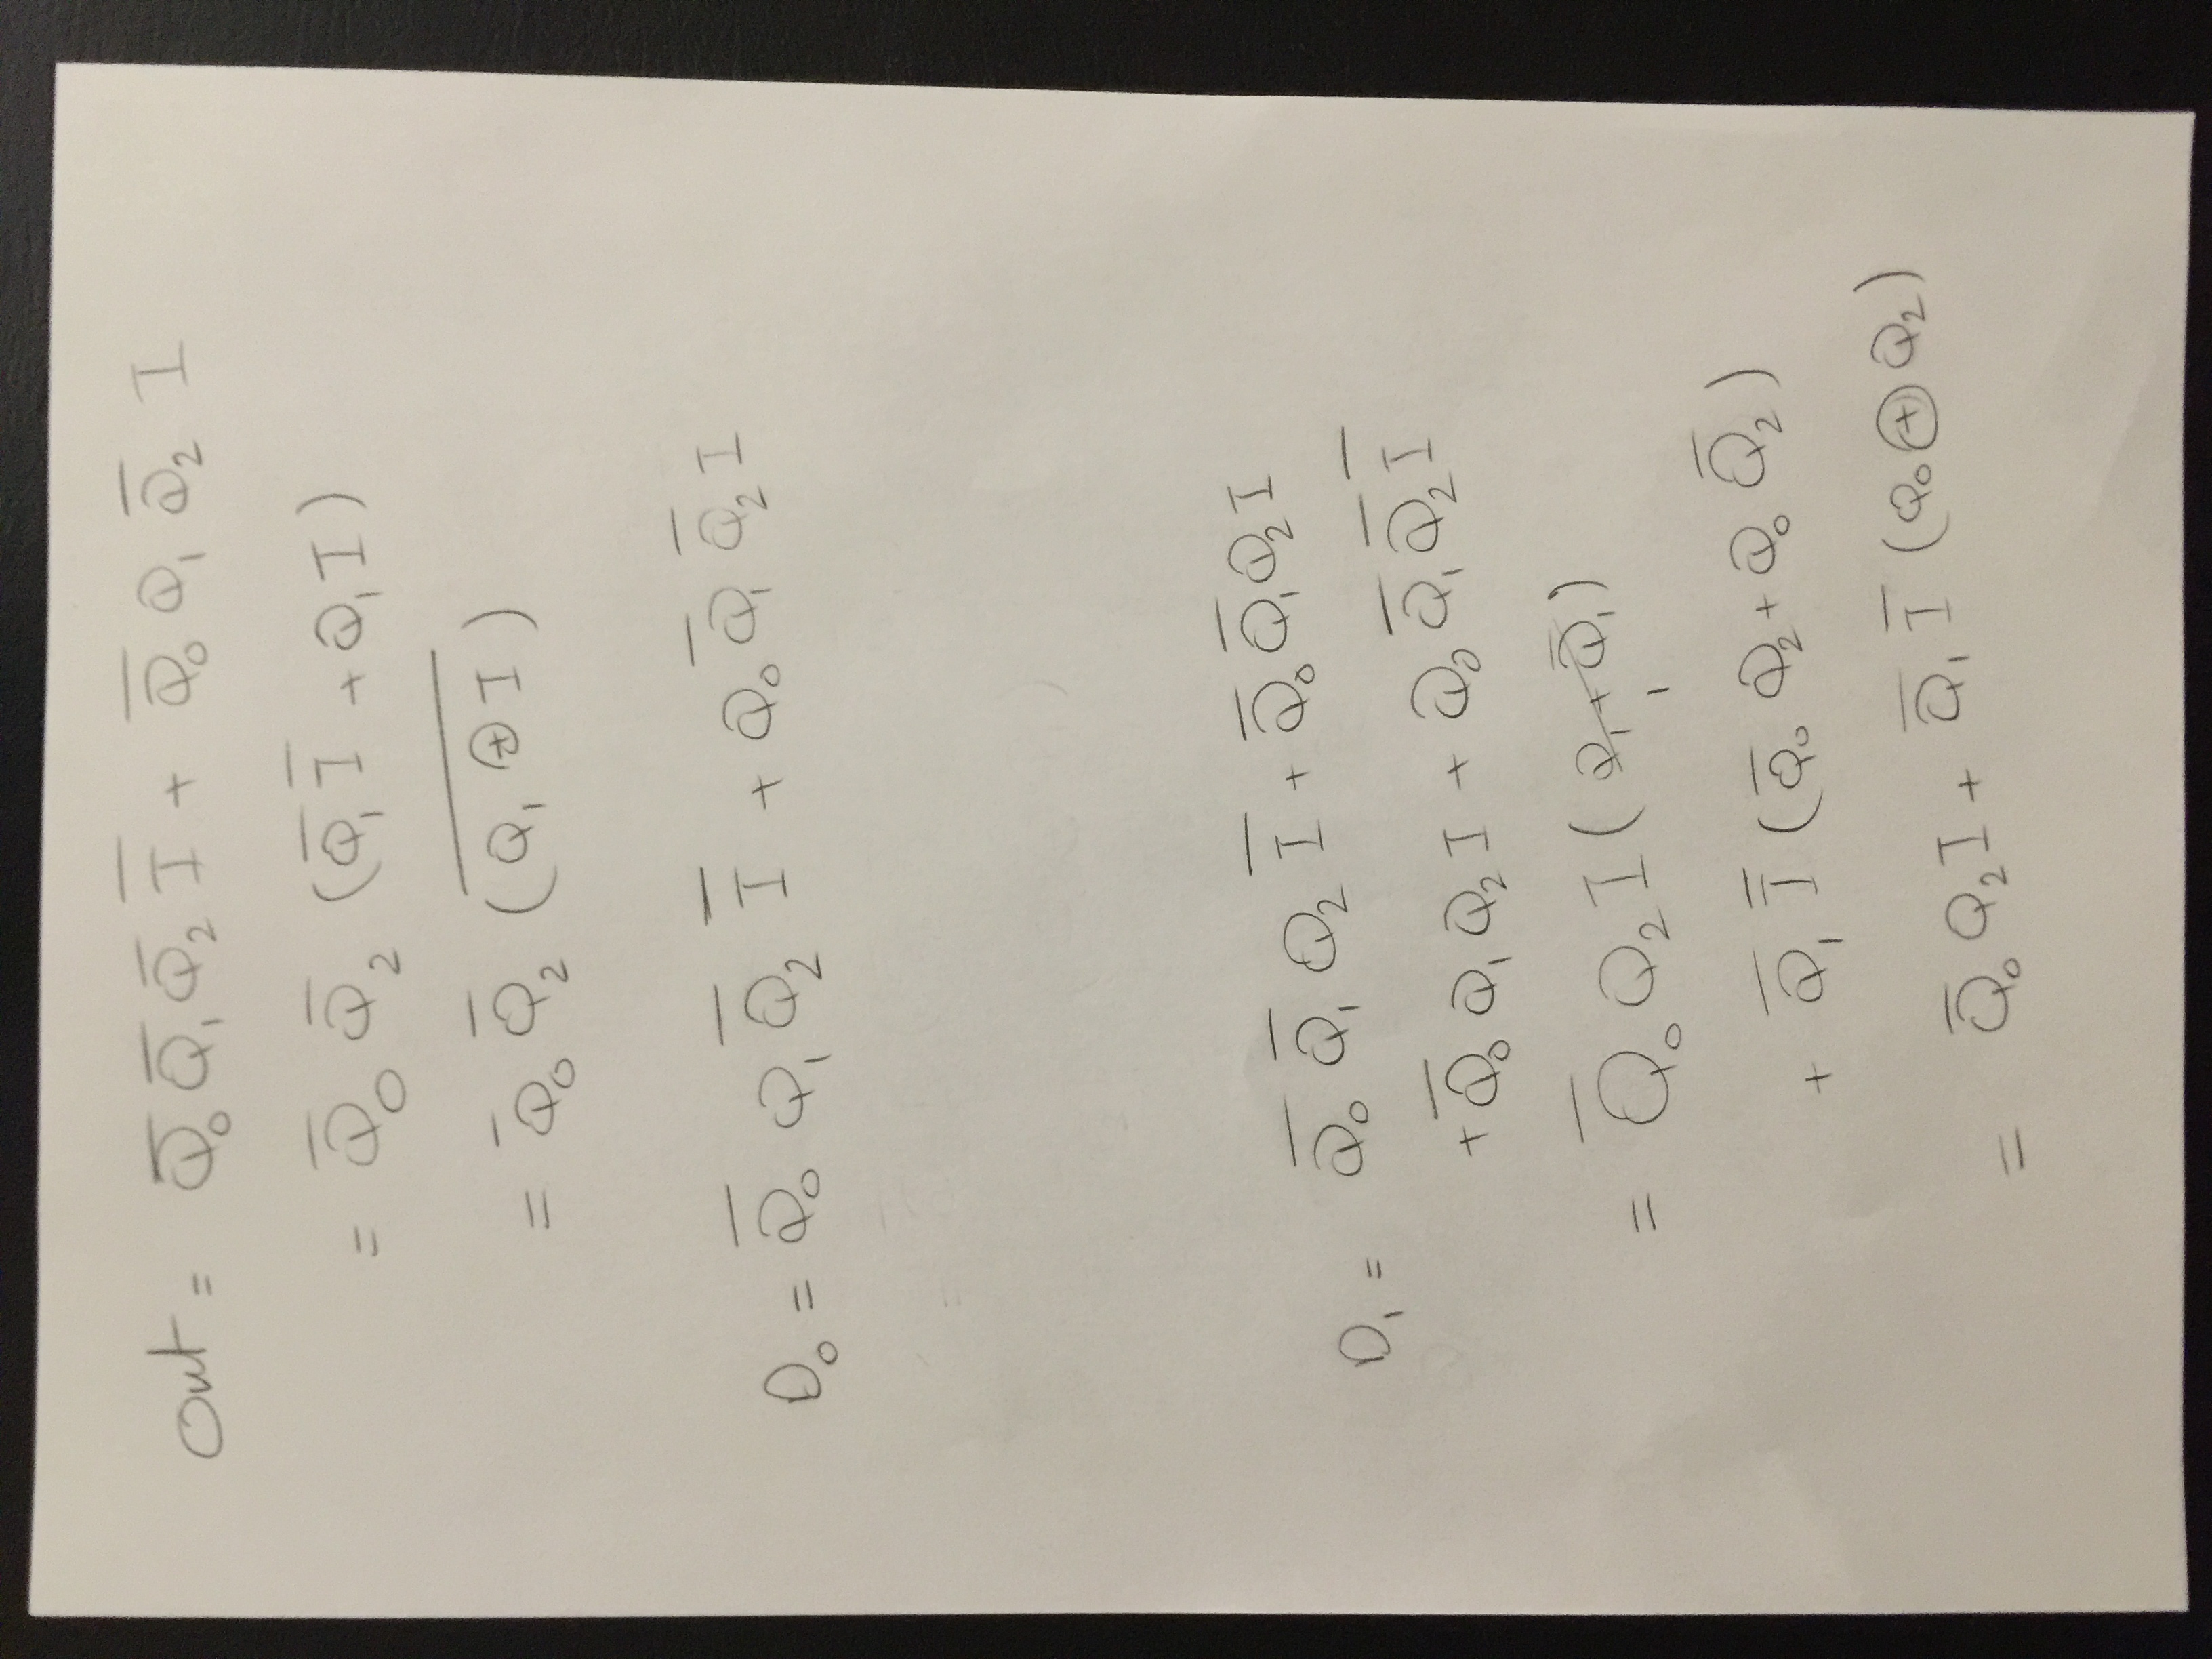 Out = Q̅₀ Q̅₁ Q̅₂ I̅ + Q̅₀ Q₁ Q̅₂ I
= Q̅₀ Q̅₂ (Q̅₁ I̅ + Q₁ I)
= Q̅₀ Q̅₂ (\overline{Q₁ ⊕ I})
D₀ = Q̅₀ Q₁ Q̅₂ I̅ + Q₀ Q̅₁ Q̅₂ I
D₁ = Q̅₀ Q̅₁ Q₂ I̅ + Q̅₀ Q̅₁ Q₂ I
+ Q̅₀ Q₁ Q₂ I + Q₀ Q̅₁ Q̅₂ I̅
= Q̅₀ Q₂ I (Q₁ + Q̅₁)
1
+ Q̅₁ I̅ (Q̅₀ Q₂ + Q₀ Q̅₂)
= Q̅₀ Q₂ I + Q̅₁ I̅ (Q₀ ⊕ Q₂)